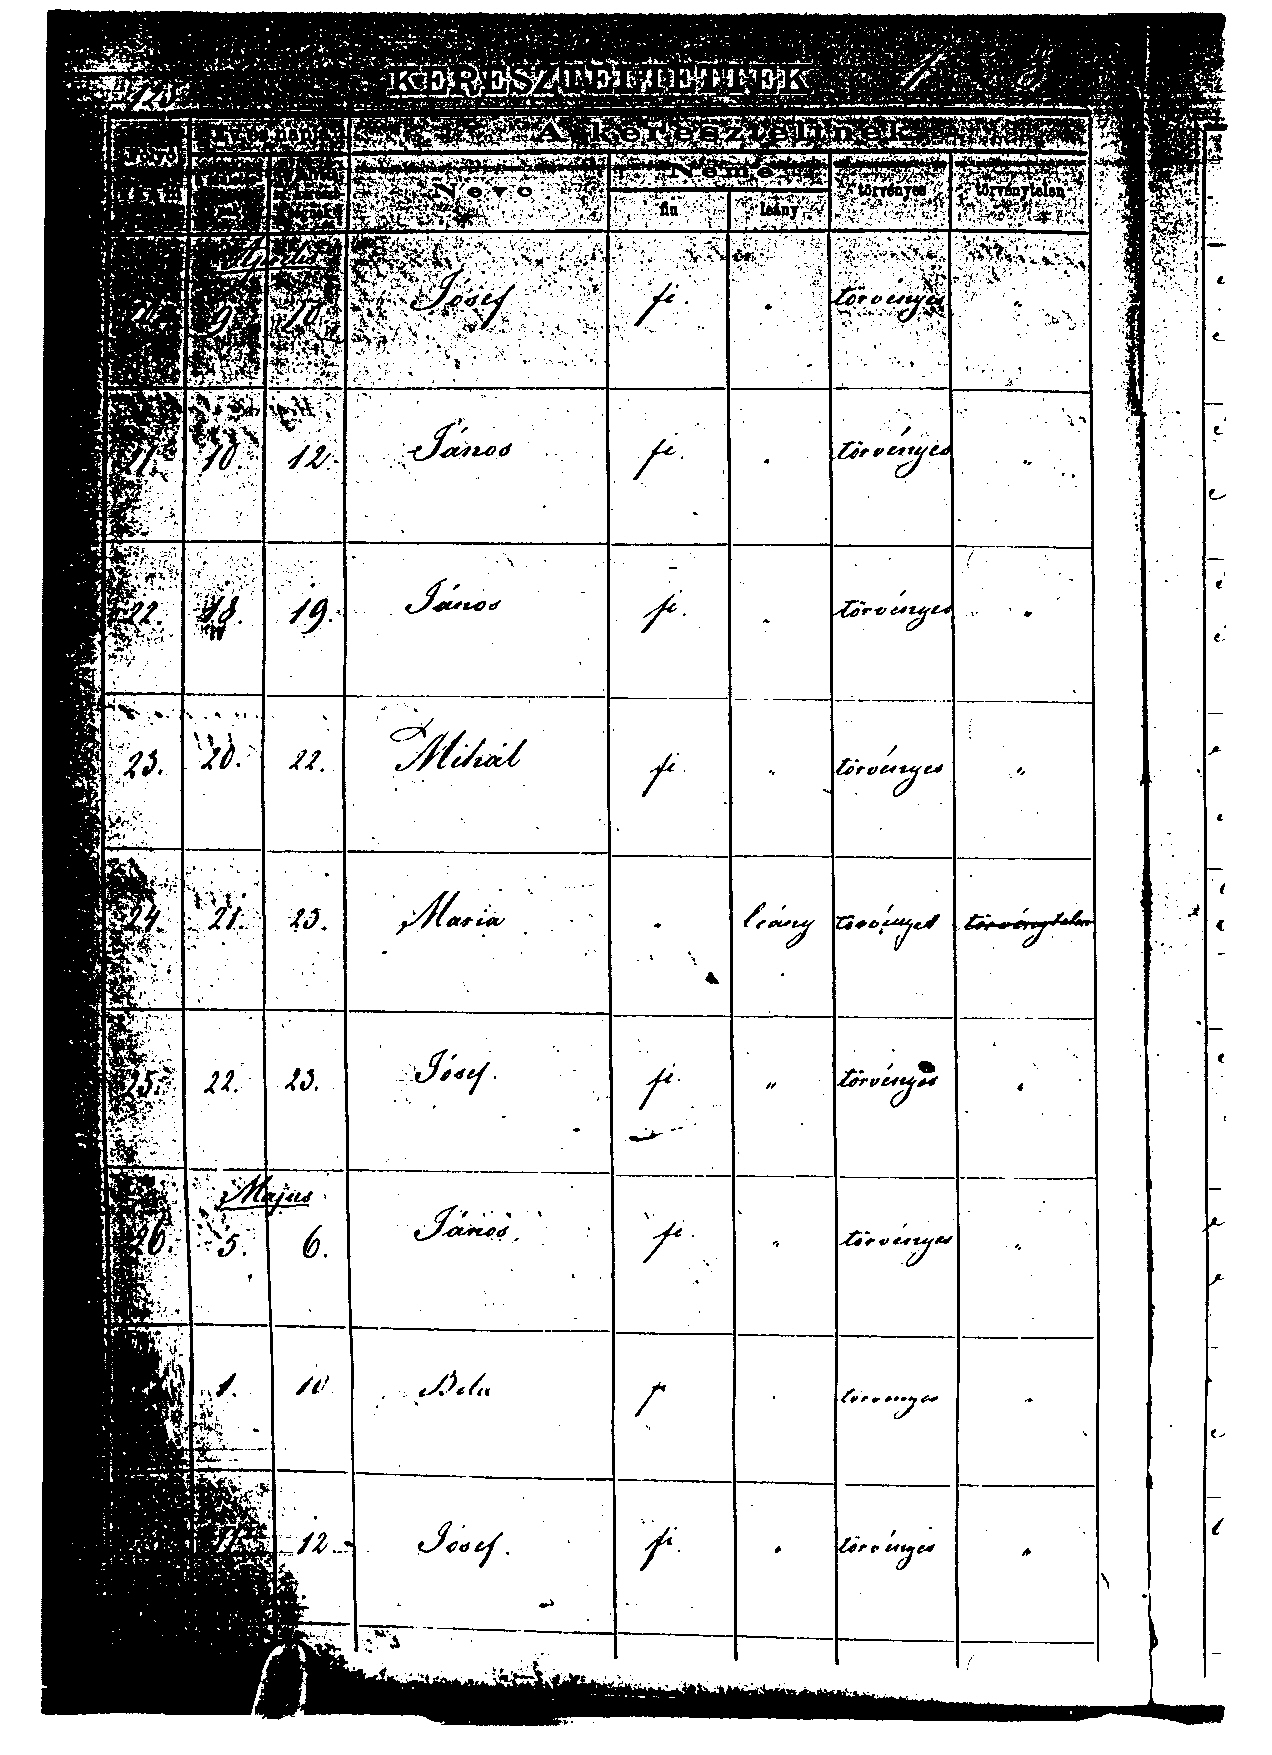 120
KERESZTELTETTEK
A kereszteltnek
Neve Neme törvényes törvénytelen
fiu leány
Április
9 10 Jósef fi. törvényes "
11. 10. 12. János fi. törvényes "
22. 18. 19. János fi. törvényes "
23. 20. 22. Mihál fi. " törvényes "
24. 21. 23. Maria leány törvényes törvénytelen
25. 22. 23. Jósef. fi. " törvényes "
Majus
26. 5. 6. János. fi. " törvényes "
10 Bela törvényes "
11 12. Jósef. fi. törvényes "